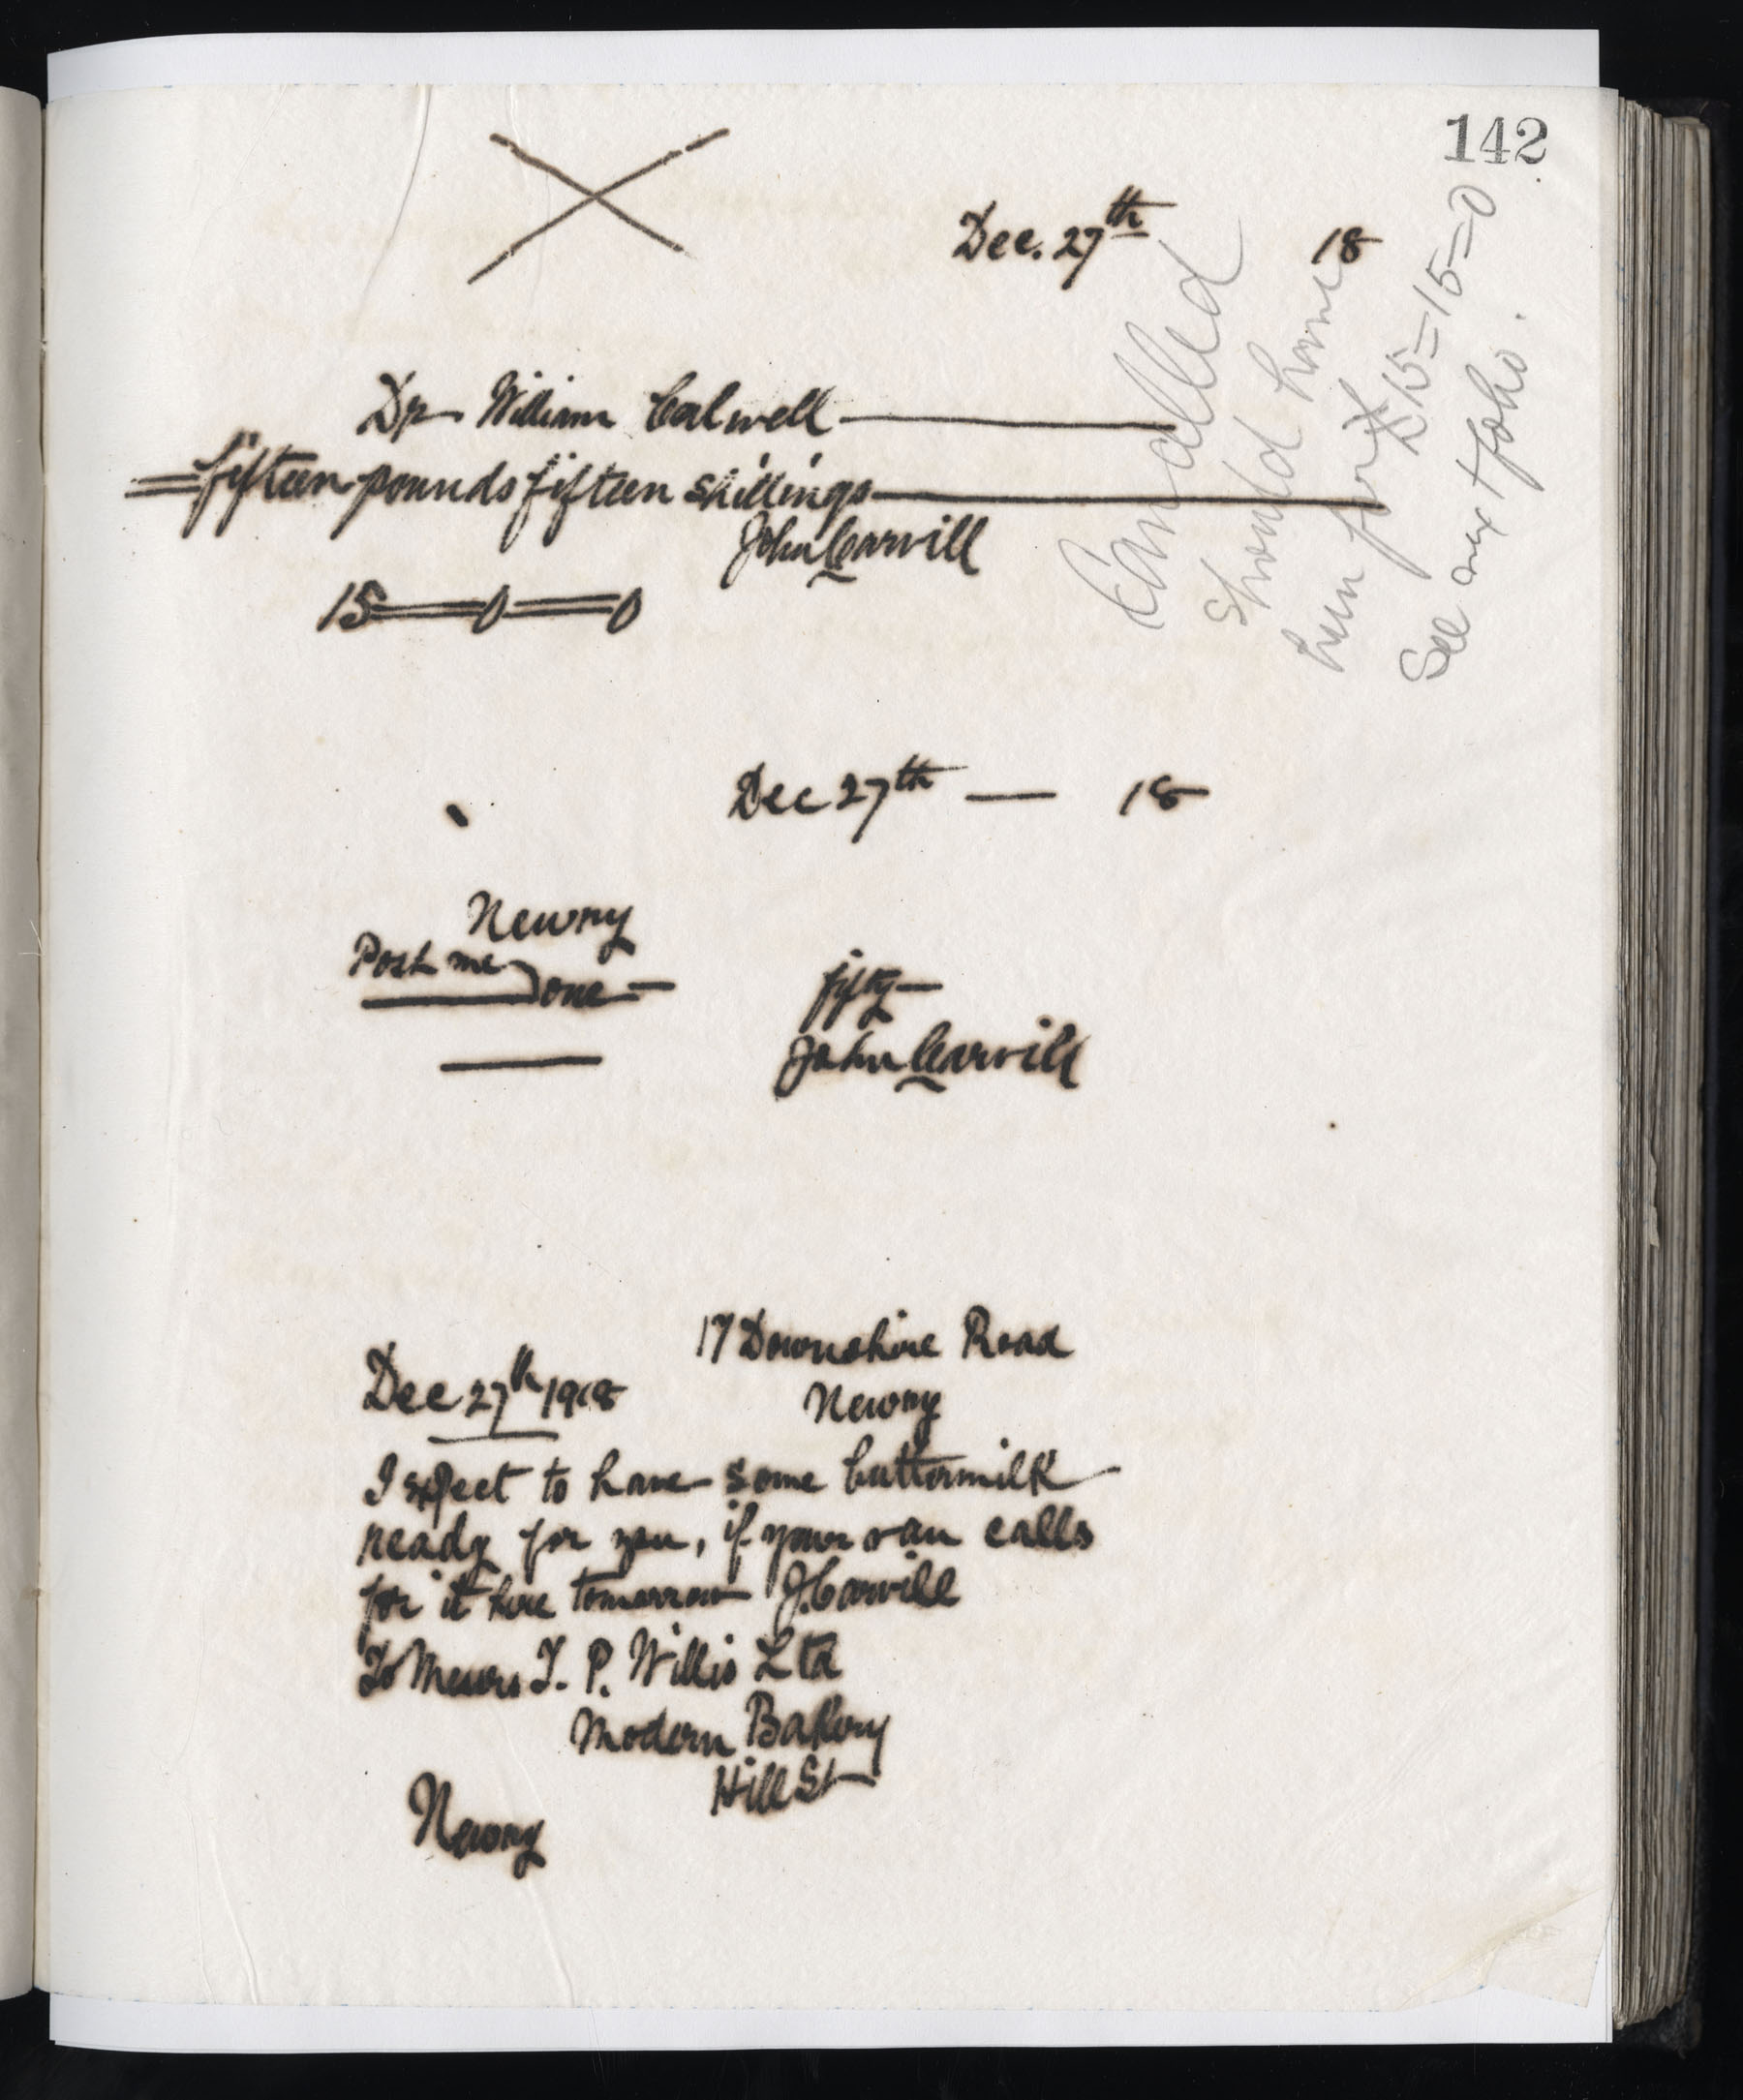 142
Dec. 27th 18
Dr William Calwell
fifteen pounds fifteen shillings
John Carvill
15=0=0
Cancelled
should have
been for
£15=15=0
See next folio.
Dec 27th — 18
Newry
Post me
one — fifty —
John Carvill
17 Downshire Road
Dec 27th 1918 Newry
I expect to have some buttermilk
ready for you, if your van calls
for it here tomorrow J. Carvill
To Messrs T. P. Willis Ltd
Modern Bakery
Hill St
Newry